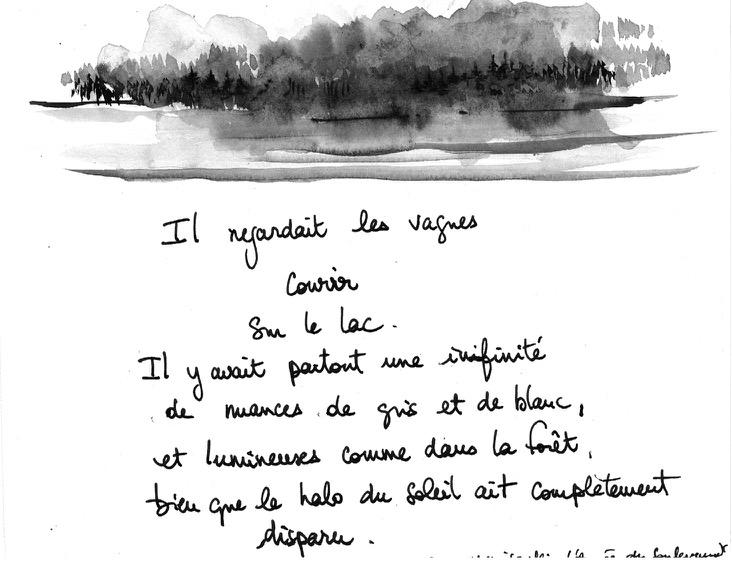 Il regardait les vagues
courir
sur le lac.
Il y avait partout une infinité
de nuances de gris et de blanc,
et lumineuses comme dans la forêt,
bien que le halo du soleil ait complètement
disparu.